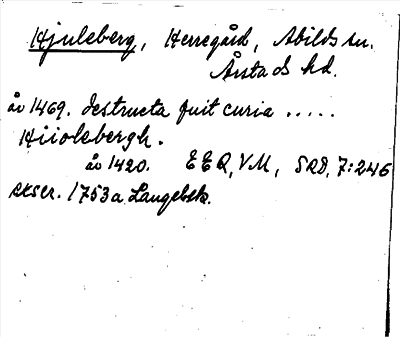 Hjuleberg, Herregård, Abilds sn.
Årstads hd.
år 1469. destructa fuit curia .....
Hiiolebergh.
år 1420. EEQ, VM, SRD, 7:246
exscr. 1753 a Langebek.